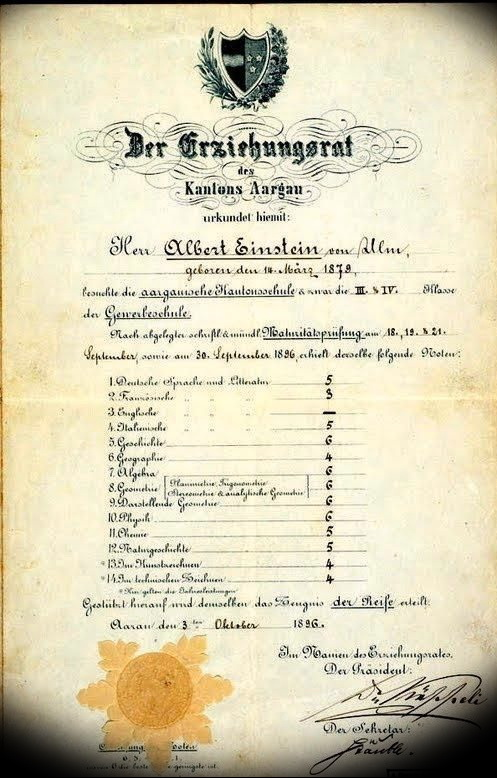 Der Erziehungsrat
des
Kantons Aargau
urkundet hiemit:
Herr Albert Einstein von Ulm,
geboren den 14. März 1879,
besuchte die aargauische Kantonsschule & zwar die III. & IV. Klasse
der Gewerbeschule.
Nach abgelegter schriftl. & mündl. Maturitätsprüfung am 18., 19. & 21.
September, sowie am 30. September 1896, erhielt derselbe folgende Noten:
1. Deutsche Sprache und Litteratur 5
2. Französische " " " 3
3. Englische " " " —
4. Italienische " " " 5
5. Geschichte 6
6. Geographie 4
7. Algebra 6
8. Geometrie [Planimetrie, Trigonometrie 6
Stereometrie & analytische Geometrie]
9. Darstellende Geometrie 6
10. Physik 6
11. Chemie 5
12. Naturgeschichte 5
*13. Im Kunstzeichnen 4
*14. Im technischen Zeichnen 4
*Hier gelten die Jahresleistungen
Gestützt hierauf wird demselben das Zeugnis der Reife erteilt.
Aarau den 3ten Oktober 1896.
Im Namen des Erziehungsrates,
Der Präsident:
Der Sekretär:
Noten
6. 5. 1.
die beste geringste ist.